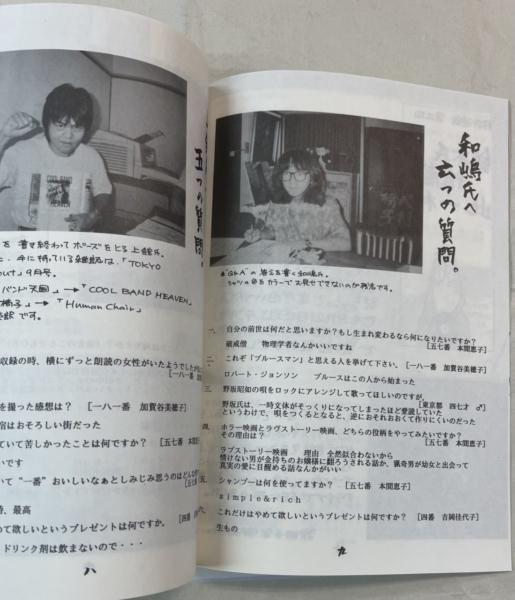 五つの質問。
COOL BAND HEAVEN
を書き終わってポーズをとる上館氏。
手に持っている雑誌は、「TOKYO
out」9月号。
バンド天国」→「COOL BAND HEAVEN」
椅子」→「Human Chair」
です。
収録の時、横にずっと朗読の女性がいたようでしたが
[一八一番
を撮った感想は? [一八一番 加賀谷美穂子]
宿はおそろしい街だった
ていて苦しかったことは何ですか? [五七番 本間恵子]
いです
いて“一番”おいしいなぁとしみじみ思うのはどんな
[五七番
時、最高
やめて欲しいというプレゼントは何ですか。 [四番
ドリンク剤は飲まないので・・・
八
和嶋氏へ
六つの質問。
"Q&A"の答えを書く和嶋氏。
シャツの色をカラーでお見せできないのが残念です。
一、自分の前世は何だと思いますか?もし生まれ変わるなら何になりたいですか?
[五七番 本間恵子]
破戒僧 物理学者なんかいいね
二、これぞ「ブルースマン」と思える人を挙げて下さい。[一八一番 加賀谷美穂子]
ロバート・ジョンソン ブルースはこの人から始まった
三、野坂昭如の唄をロックにアレンジして歌ってほしいのですが。
[東京都 四七才 ♂]
野坂氏は、一時文体がそっくりになってしまったほど愛読していた
というわけで、唄をつくるとなると、逆におそれおおくて作りにくいのだった
四、ホラー映画とラブストーリー映画、どちらの役柄をやってみたいですか?
その理由は? [五七番 本間恵子]
ラブストーリー映画 理由 全然似合わないから
情けない男が金持ちのお嬢様に翻ろうされる話か、猟奇男が幼女と出会って
真実の愛に目醒める話なんかがいい
五、シャンプーは何を使ってますか? [五七番 本間恵子]
simple&rich
六、これだけはやめて欲しいというプレゼントは何ですか? [四番 吉岡佳代子]
生もの
九